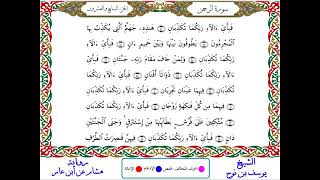 سورة الرحمن
الجزء السابع والعشرون
فَبِأَيِّ ءَالَآءِ رَبِّكُمَا تُكَذِّبَانِ هَٰذِهِۦ جَهَنَّمُ ٱلَّتِي يُكَذِّبُ بِهَا
ٱلْمُجْرِمُونَ يَطُوفُونَ بَيْنَهَا وَبَيْنَ حَمِيمٍ ءَانٍ فَبِأَيِّ ءَالَآءِ
رَبِّكُمَا تُكَذِّبَانِ وَلِمَنْ خَافَ مَقَامَ رَبِّهِۦ جَنَّتَانِ فَبِأَيِّ
ءَالَآءِ رَبِّكُمَا تُكَذِّبَانِ ذَوَاتَآ أَفْنَانٍ فَبِأَيِّ ءَالَآءِ رَبِّكُمَا
تُكَذِّبَانِ فِيهِمَا عَيْنَانِ تَجْرِيَانِ فَبِأَيِّ ءَالَآءِ رَبِّكُمَا
تُكَذِّبَانِ فِيهِمَا مِن كُلِّ فَٰكِهَةٍ زَوْجَانِ فَبِأَيِّ ءَالَآءِ رَبِّكُمَا تُكَذِّبَانِ
مُتَّكِـِٔينَ عَلَىٰ فُرُشٍۭ بَطَآئِنُهَا مِنْ إِسْتَبْرَقٍ وَجَنَى ٱلْجَنَّتَيْنِ
دَانٍ فَبِأَيِّ ءَالَآءِ رَبِّكُمَا تُكَذِّبَانِ فِيهِنَّ قَٰصِرَٰتُ ٱلطَّرْفِ
الشيخ
يوسف بن نوح
الإدغام
الإمالة
رواية
هشام عن ابن عامر